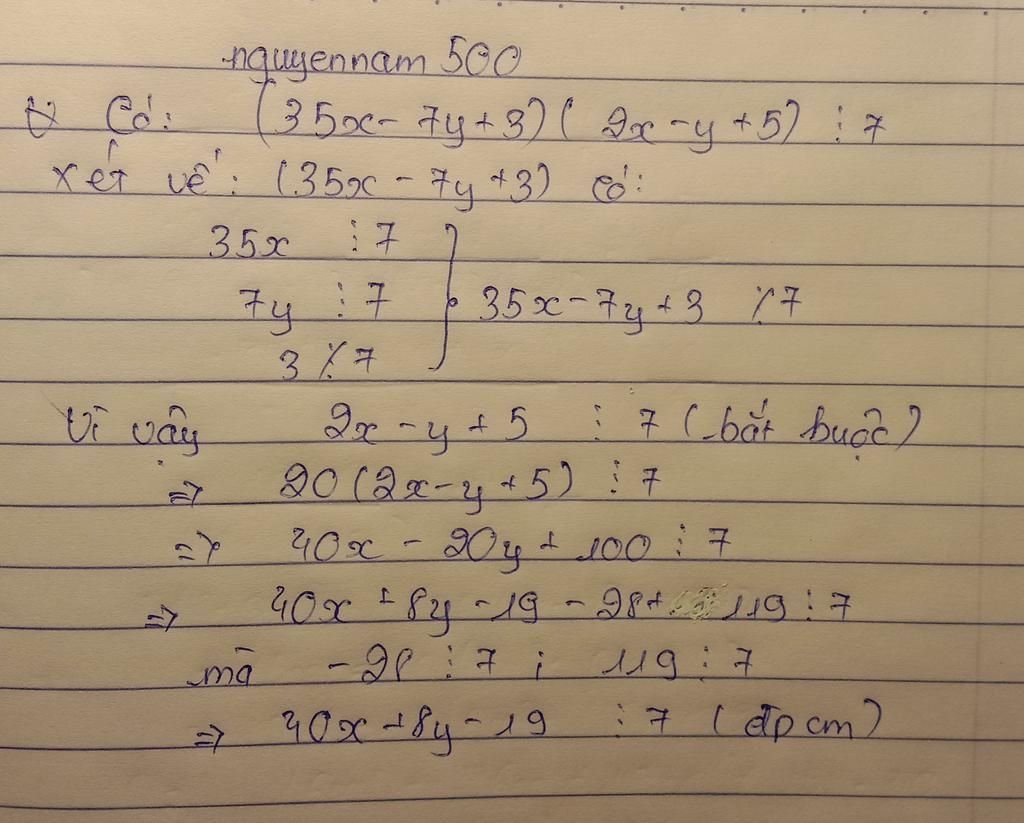 nguyennam 500
Có: (35x - 7y + 3)( 2x - y + 5) ⋮ 7
xét vế: (35x - 7y + 3) có:
35x ⋮ 7
7y ⋮ 7 } 35x - 7y + 3 ⋮̸ 7
3 ⋮̸ 7
Vì vậy 2x - y + 5 ⋮ 7 (bắt buộc)
=> 20(2x - y + 5) ⋮ 7
=> 40x - 20y + 100 ⋮ 7
=> 40x + 8y - 19 - 28 + 119 ⋮ 7
mà -28 ⋮ 7 ; 119 ⋮ 7
=> 40x + 8y - 19 ⋮ 7 (đpcm)